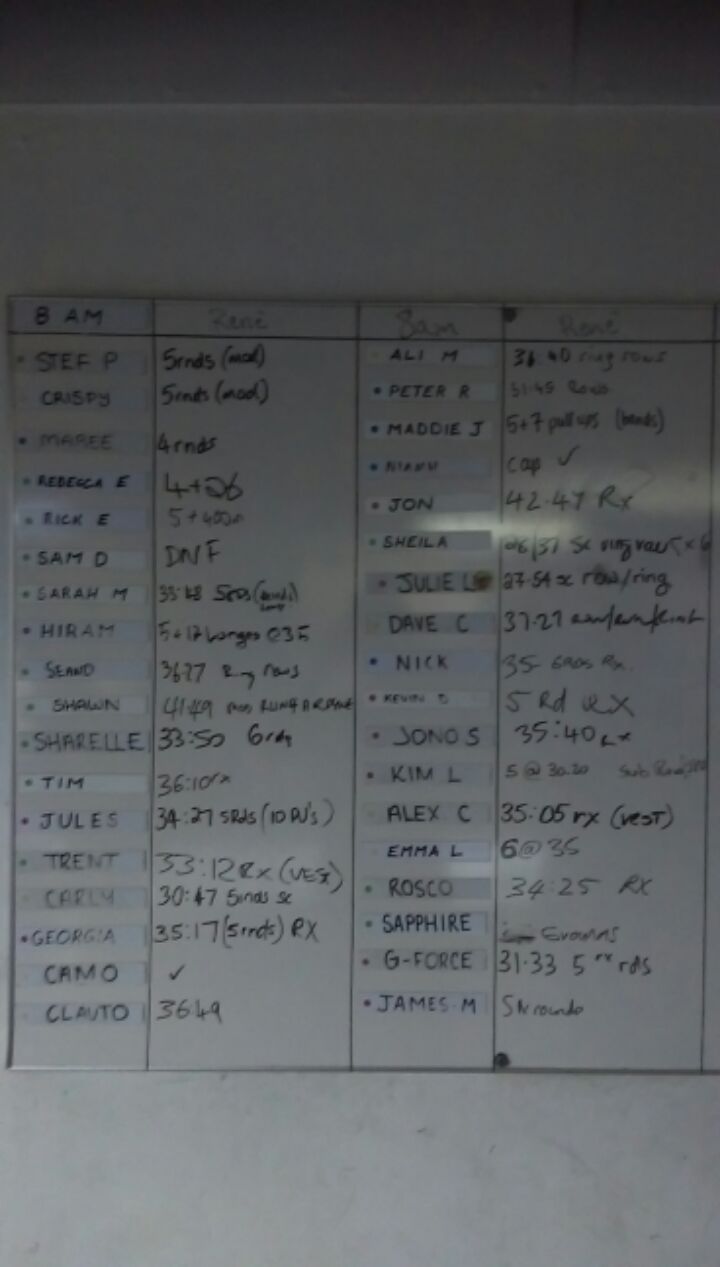 8 AM René 8am René
STEF P 5rnds (mod)
CRISPY 5rnds (mod)
MAREE 4 rnds
REBECCA E 4+26
RICK E 5 + 400m
SAM D DNF
SARAH M
HIRAM 5+12 lunges @35
SEAND ring rows
SHAWN 41:49
SHARELLE 33:50 6rds
TIM 36:10 rx
JULES 34:27 5Rds (10 PU's)
TRENT 33:12 Rx (VEST)
CARLY 30:47 5rnds sc
GEORGIA 35:17 (5rnds) RX
CAMO ✓
CLAUTO 36:49
ALI M 36:40 ring rows
PETER R 31:45 Rows
MADDIE J 5+7 pull ups (bands)
NIAMH cap ✓
JON 42:47 Rx
SHEILA sc ring row
JULIE L 27:54 sc row/ring
DAVE C 37:27
NICK 35- 6RDS Rx.
KEVIN 5 Rd RX
JONO S 35:40 Rx
KIM L 5 @ 30.20 Sub
ALEX C 35:05 rx (vest)
EMMA L 6@35
ROSCO 34:25 RX
SAPPHIRE
G-FORCE 31.33 5 rx rds
JAMES M rounds